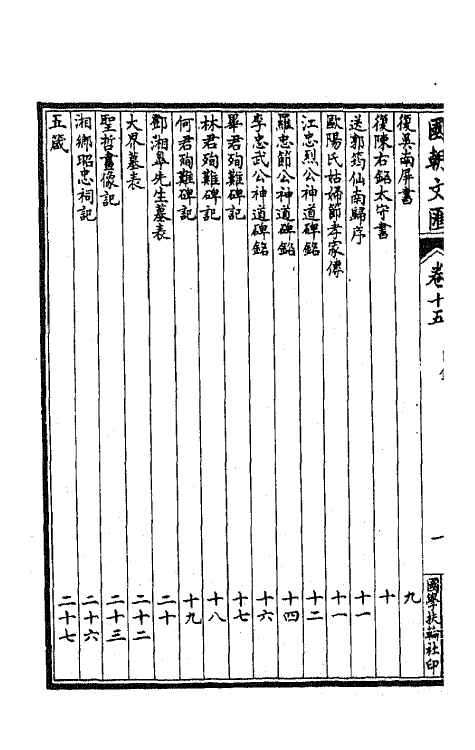 國朝文匯 卷十五 目錄 一 國學扶輪社印
復吳南屏書 九
復陳右銘太守書 十
送郭筠仙南歸序 十一
歐陽氏姑婦節孝家傳 十一
江忠烈公神道碑銘 十二
羅忠節公神道碑銘 十四
李忠武公神道碑銘 十六
畢君殉難碑記 十七
林君殉難碑記 十八
何君殉難碑記 十九
鄧湘皋先生墓表 二十
大界墓表 二十二
聖哲畫像記 二十三
湘鄉昭忠祠記 二十六
五箴 二十七